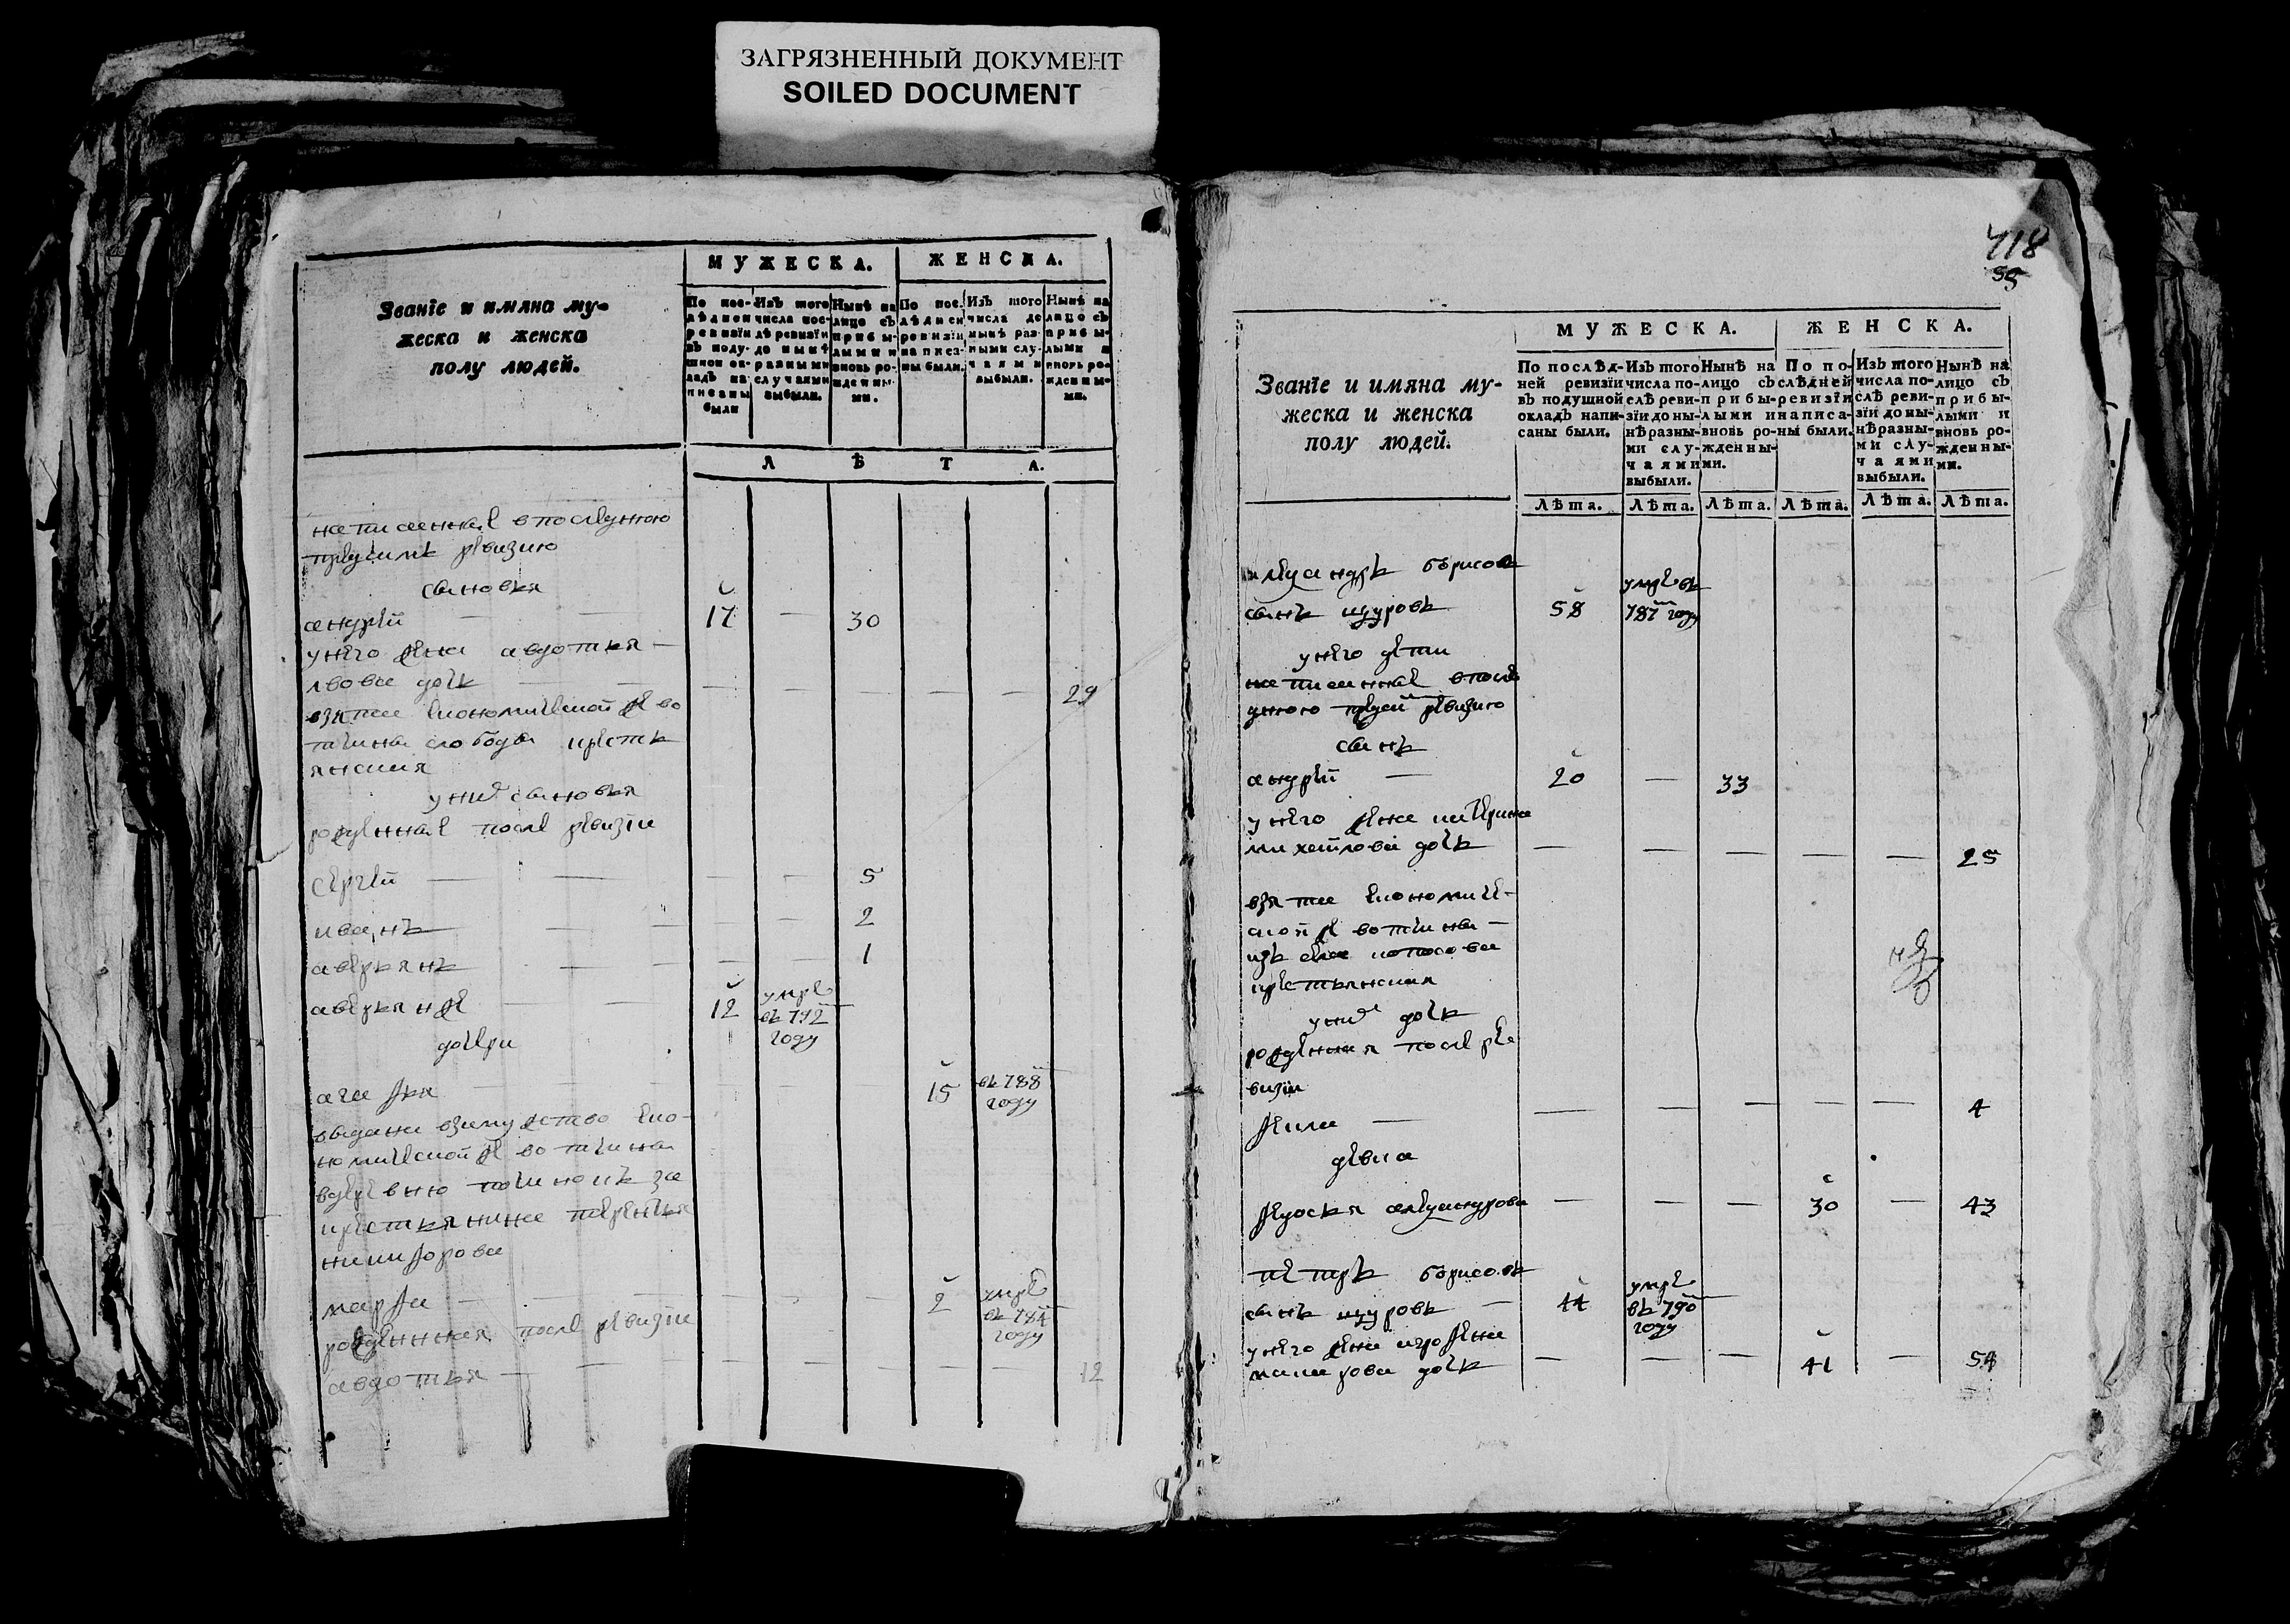 ЗАГРЯЗНЕННЫЙ ДОКУМЕНТ
SOILED DOCUMENT
Званїе и имяна му-
жеска и женска
полу людей.
МУЖЕСКА.
ЖЕНСКА.
По пос-
лѣдней
ревизїи
въ поду-
шной ок-
ладъ на
писаны
были
Изъ того
числа пос-
лѣ ревизїи
до нынѣ
разными
случаями
выбыли.
Нынѣ на
лицо съ
прибы-
лыми и
вновь ро-
жденны-
ми.
По пос-
лѣдней
ревизїи
написа-
ны были.
Изъ того
числа до
нынѣ раз-
ными слу-
чаями
выбыли.
Нынѣ на
лицо съ
прибы-
лыми и
вновь ро-
жденны-
ми.
ЛѢТА.
написанныя в последнюю
пред симъ ревизию
сыновья
андрей 17 — 30
у него жена авдотья —
львова дочь — — — — — 29
взятая економической же во
тчины слободы крестья
янская
у них сыновья
рожденныя после ревизїи
сергей — — 5
иванъ — — 2
аверьянъ — — 1
аверьян же 12 умре въ 792 году
дочери
агафья 15 въ 788 году
выдана взамужство еко-
номической же вотчины
в деревню починокъ за
крестьянина терентья
никифорова
марфа 2 умре въ 784 году
рожденная после ревизїи
авдотья — 12
718
55
Званїе и имяна му-
жеска и женска
полу людей.
МУЖЕСКА.
ЖЕНСКА.
По послѣд-
ней ревизїи
въ подушной
окладъ напи-
саны были.
Изъ того
числа по-
слѣ реви-
зїи до ны-
нѣ разны-
ми слу-
чаями
выбыли.
Нынѣ на
лицо съ
прибы-
лыми и
вновь ро-
жденны-
ми.
По по-
слѣдней
ревизїи
написа-
ны были.
Изъ того
числа по-
слѣ реви-
зїи до ны-
нѣ разны-
ми слу-
чаями
выбыли.
Нынѣ на
лицо съ
прибы-
лыми и
вновь ро-
жденны-
ми.
Лѣта. Лѣта. Лѣта. Лѣта. Лѣта. Лѣта.
александръ борисов
сынъ щуровъ 58 умре въ 787 году
у него дети
написанныя в после
днюю пред сим ревизию
сынъ
андрей — 20 — 33
у него жена катерина
михайлова дочь — — — — — 25
взятая економиче-
ской же вотчины —
изъ села
крестьянская
у них дочь
рожденная после ре
визїи
— — — — — 4
девка
федосья александрова — — — 30 — 43
петръ борисовъ
сынъ щуровъ — 44 умре въ 790 году
у него жена
макарова дочь — — — 41 — 54